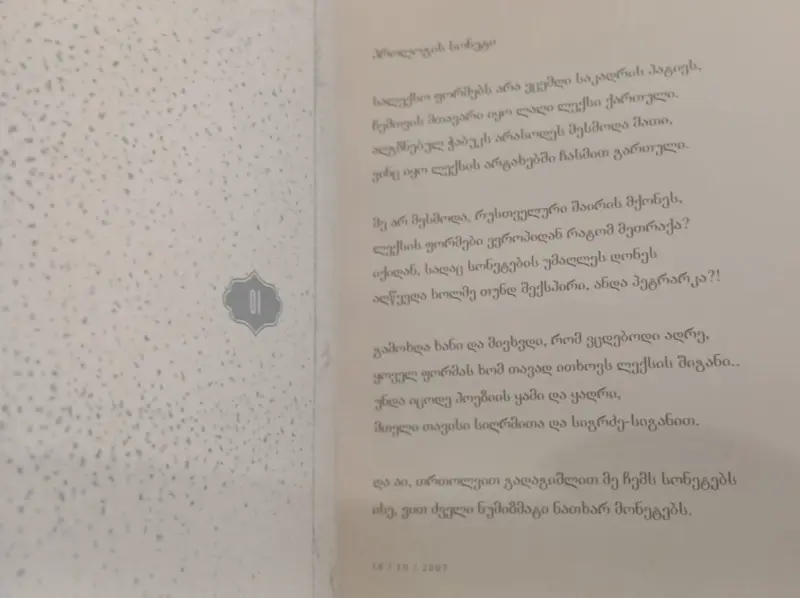 01
პროლოგის სონეტი
სალექსო ფორმებს არა ვცემდი საკადრის პატივს,
ჩემთვის მთავარი იყო ლაღი ლექსი ქართული.
აღგზნებულ ჭაბუკს არასოდეს მესმოდა მათი,
ვინც იყო ლექსის არტახებში ჩასმით გართული.
მე არ მესმოდა, რუსთველური შაირის მქონეს,
ლექსის ფორმები ევროპიდან რატომ მეთრაქა?
იქიდან, სადაც სონეტების უმაღლეს დონეს
აღწევდა ხოლმე თუნდ შექსპირი, ანდა პეტრარკა?!
გამოხდა ხანი და მივხვდი, რომ ვცდებოდი ადრე,
ყოველ ფორმას ხომ თავად ითხოვს ლექსის შიგანი..
უნდა იცოდე პოეზიის ყამი და ყადრი,
მთელი თავისი სიღრმითა და სიგრძე-სიგანით.
და აი, თრთოლვით გადაგიშლით მე ჩემს სონეტებს
ისე, ვით ძველი ნუმიზმატი ნათხარ მონეტებს.
18 / 10 / 2007